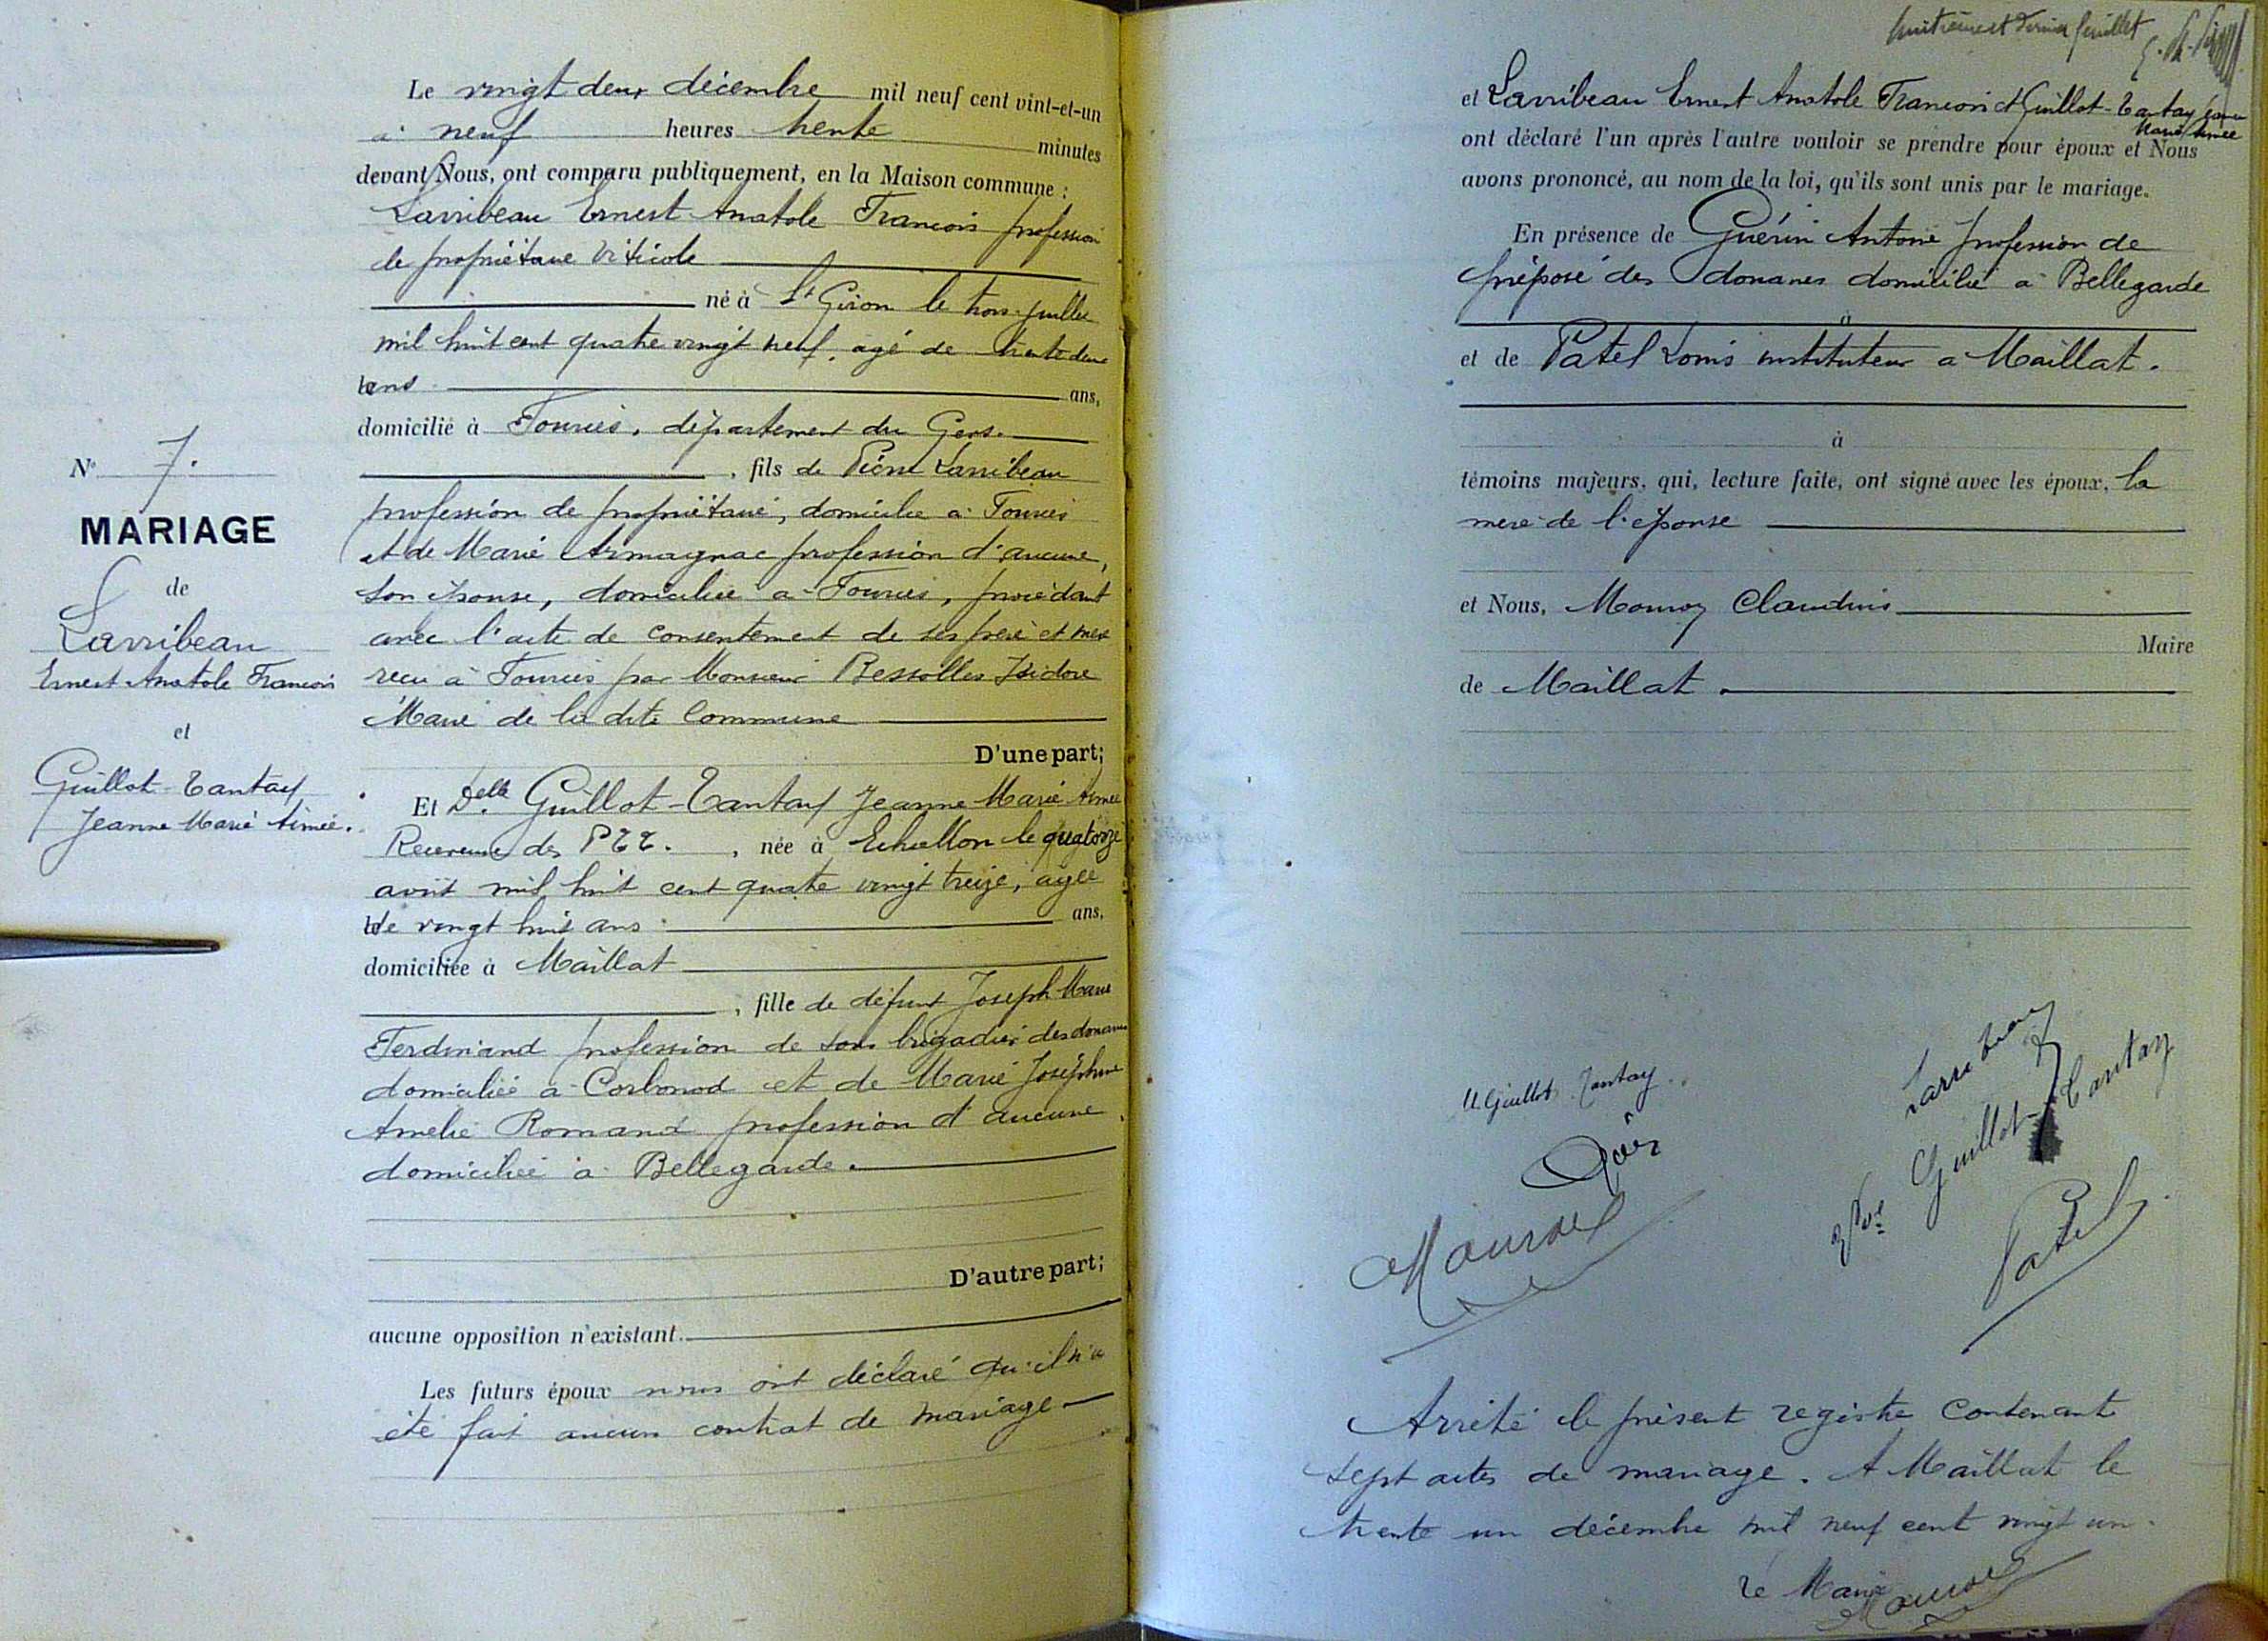 Le vingt deux décembre mil neuf cent vint-et-un
à neuf heures trente minutes
devant Nous, ont comparu publiquement, en la Maison commune :
Larribeau Ernest Anatole Francois profession
de propriétaire viticole
né à St Giron le trois juillet
mil huit cent quatre vingt neuf, agé de trente deux
ans ans,
domicilié à Fourcès, département du Gers.
, fils de Pierre Larribeau
profession de propriétaire, domicilié à Fourcès
et de Marie Armagnac profession d'aucune,
son épouse, domiciliée à Fourcès, procédant
avec l'acte de consentement de ses père et mère
recu à Fourcès par Monsieur Bessolles Isidore
Maire de la dite Commune
D'une part;
N° 7.
MARIAGE
de
Larribeau
Ernest Anatole Francois
et
Guillot-Tantay
Jeanne Marie Aimée.
Et Delle Guillot-Tantay Jeanne Marie Aimée
Receveuse des PTT. , née à Echallon le quatorze
avril mil huit cent quatre vingt treize, agée
de vingt huit ans ans,
domiciliée à Maillat
, fille de défunt Joseph Marie
Ferdinand profession de sous brigadier des douanes
domicilié à Corbonod et de Marie Joséphine
Amélie Romand profession d'aucune
domiciliée à Bellegarde.
D'autre part;
aucune opposition n'existant.
Les futurs époux nous ont déclaré qu'il n'a
été fait aucun contrat de mariage
huitième et dernier feuillet
et Larribeau Ernest Anatole Francois et Guillot-Tantay Jeanne
Marie Aimée
ont déclaré l'un après l'autre vouloir se prendre pour époux et Nous
avons prononcé, au nom de la loi, qu'ils sont unis par le mariage.
En présence de Guérin Antoine profession de
préposé des douanes domicilié à Bellegarde
à
et de Patel Louis instituteur a Maillat.
à
témoins majeurs, qui, lecture faite, ont signé avec les époux, la
mère de l'épouse
et Nous, Mouroz Claudius
Maire
de Maillat.
Larribeau
M. Guillot Tantay
Vve Guillot-Tantay
Patel
Arrêté le présent registre contenant
sept actes de mariage. A Maillat le
trente un décembre mil neuf cent vingt un.
Le Maire